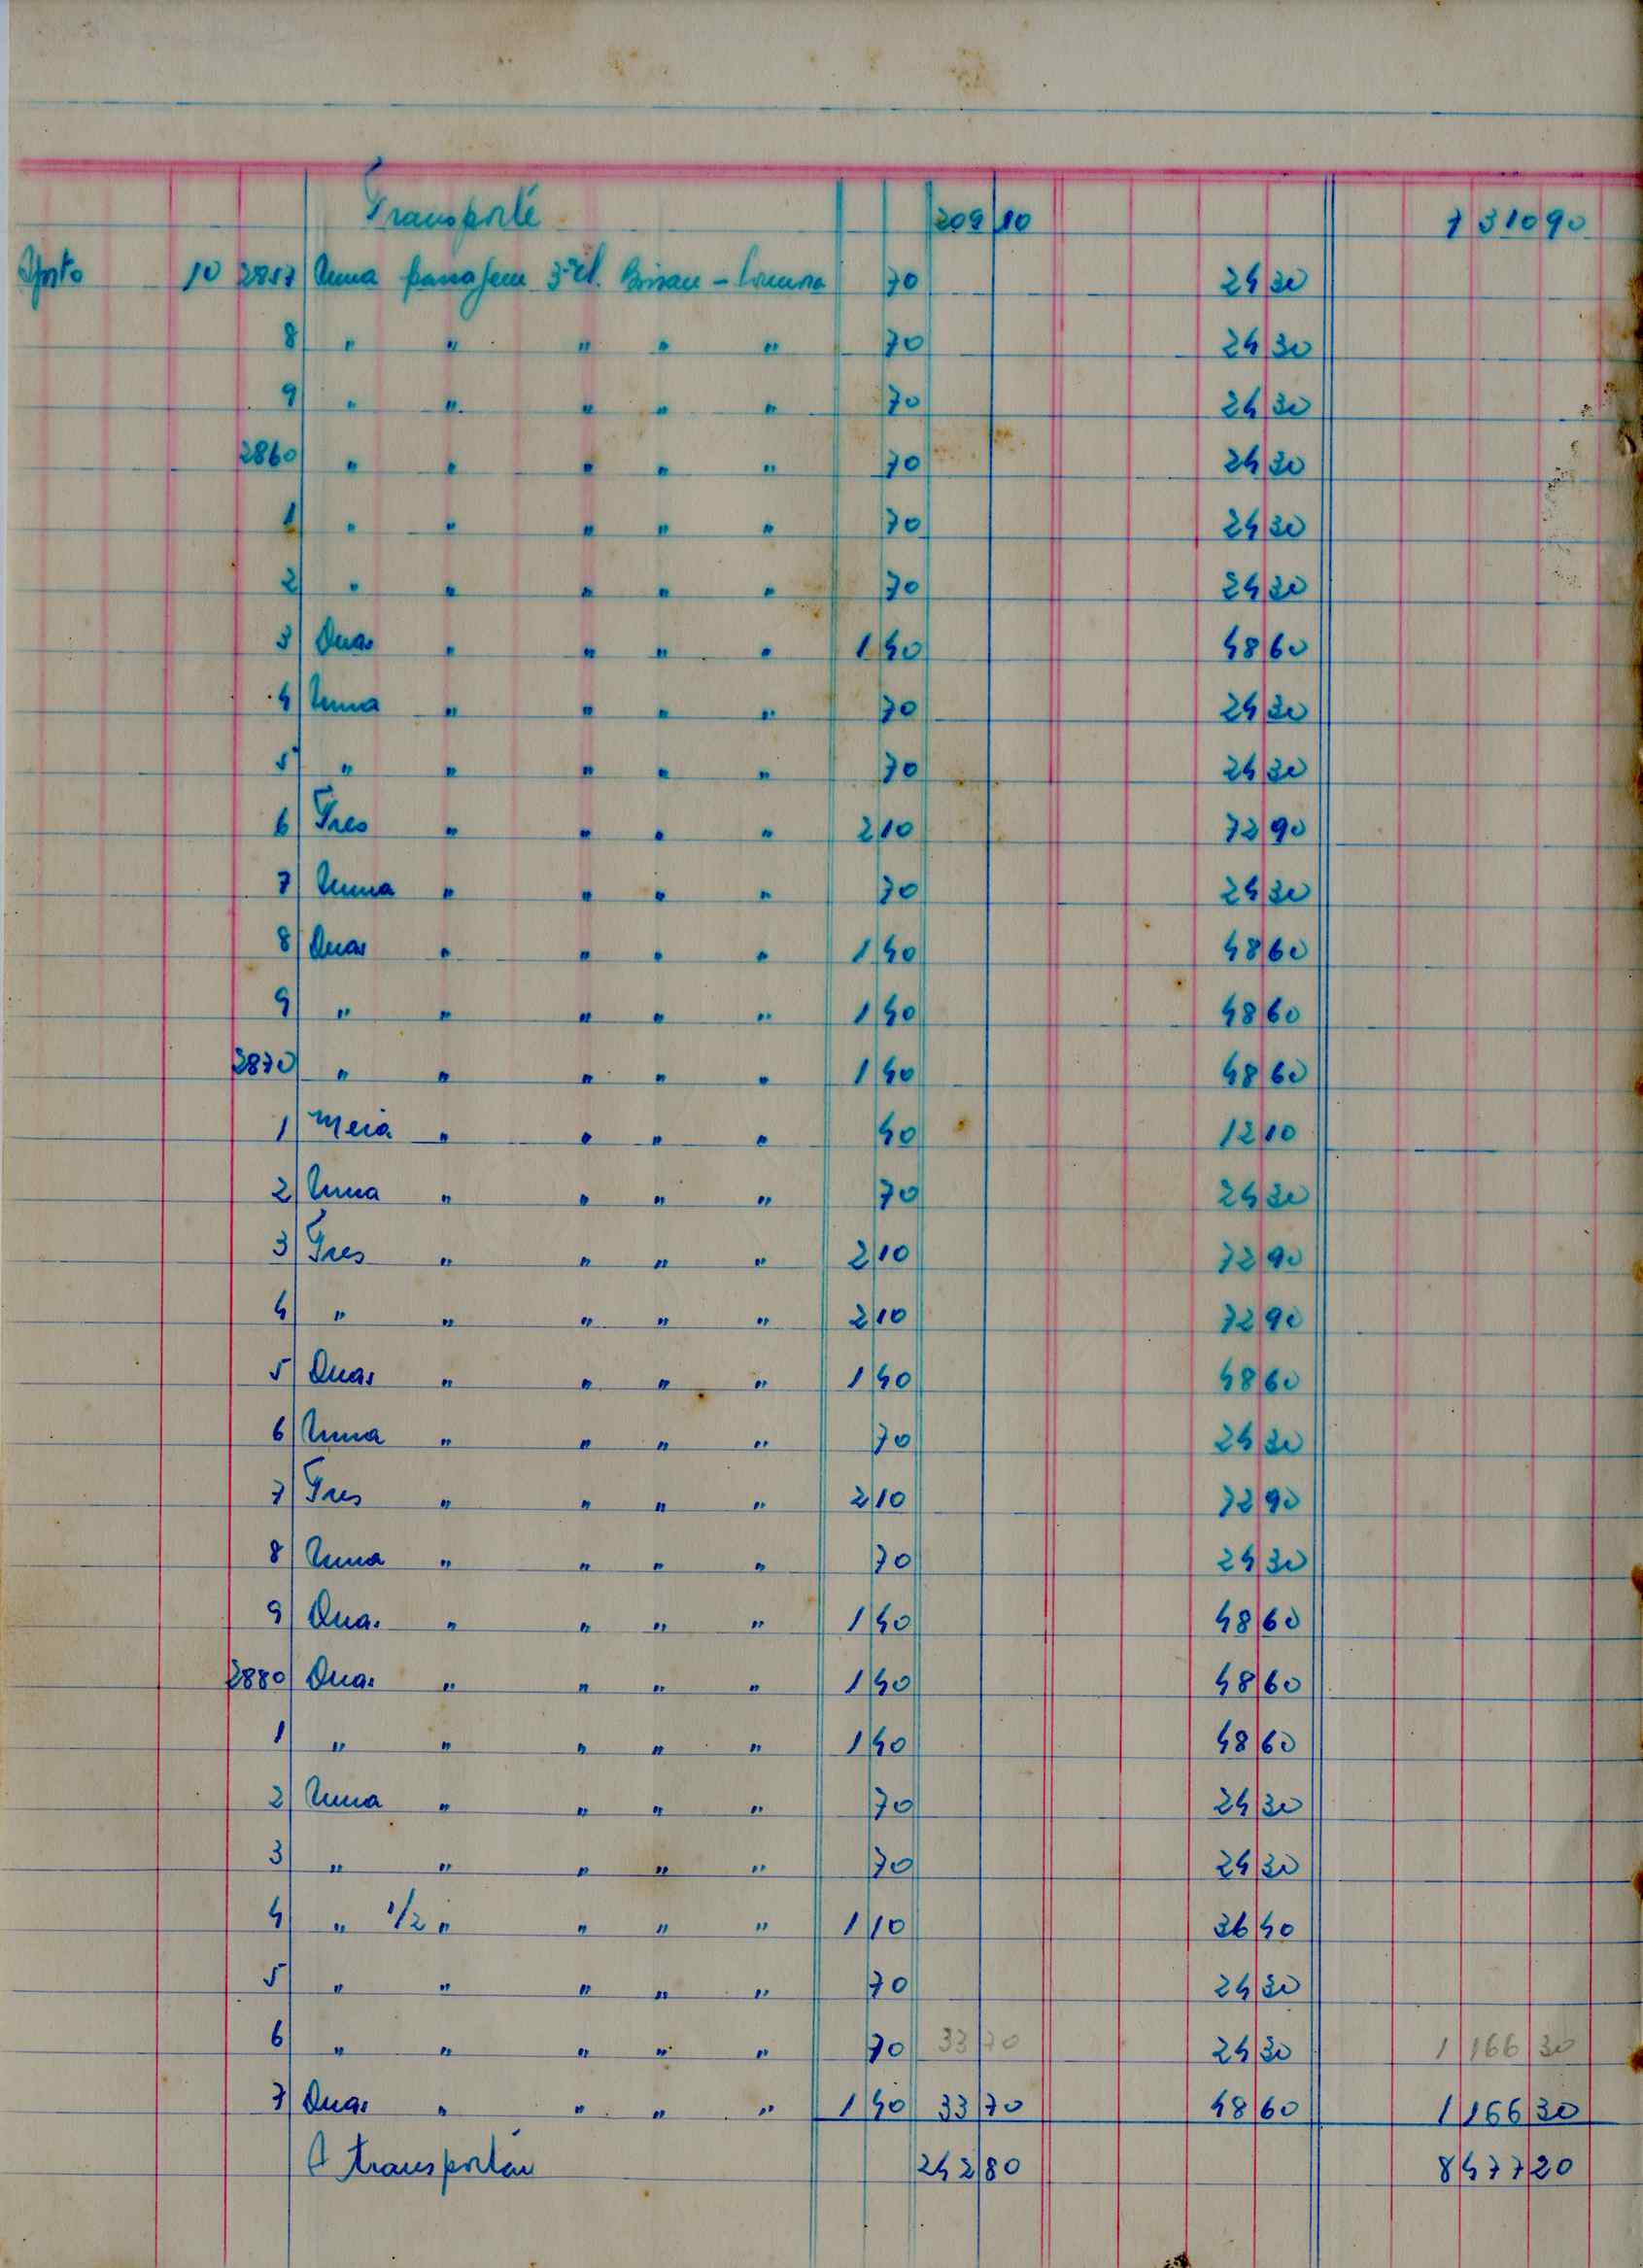 Transporte 209 10 7 310 90
Agosto 10 2857 Uma passagem 3ª cl. Bissau - 70 24 30
8 " " " " " 70 24 30
9 " " " " " 70 24 30
2860 " " " " " 70 24 30
1 " " " " " 70 24 30
2 " " " " " 70 24 30
3 Duas " " " " 1 40 48 60
4 Uma " " " " 70 24 30
5 " " " " " 70 24 30
6 Tres " " " " 2 10 72 90
7 Uma " " " " 70 24 30
8 Duas " " " " 1 40 48 60
9 " " " " " 1 40 48 60
2870 " " " " " 1 40 48 60
1 Meia " " " " 40 12 10
2 Uma " " " " 70 24 30
3 Tres " " " " 2 10 72 90
4 " " " " " 2 10 72 90
5 Duas " " " " 1 40 48 60
6 Uma " " " " 70 24 30
7 Tres " " " " 2 10 72 90
8 Uma " " " " 70 24 30
9 Duas " " " " 1 40 48 60
2880 Duas " " " " 1 40 48 60
1 " " " " " 1 40 48 60
2 Uma " " " " 70 24 30
3 " " " " " 70 24 30
4 " 1/2 " " " " 1 10 36 40
5 " " " " " 70 24 30
6 " " " " " 70 33 70 24 30 1 166 30
7 Duas " " " " 1 40 33 70 48 60 1 166 30
A transportar 242 80 8 477 20